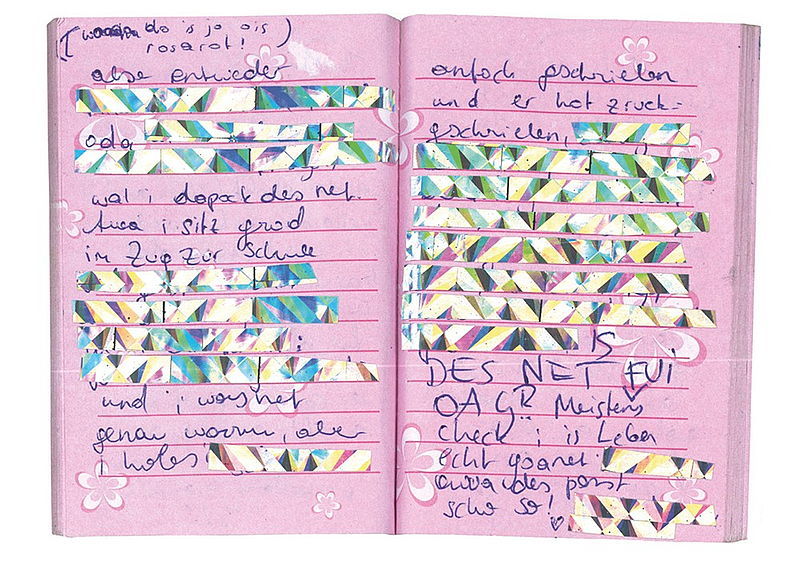 do is jo ois
rosarot!)
also entweder
oda
wal i dapack des net.
Awa i sitz grod
im Zug zur Schule
und i was net
genau warum, aber
i
anfoch gschrieben
und er hot zruck-
gschrieben,
IS
DES NET FUI
OAG?! Meistens
check i is Leben
echt goanet
awa des passt
scho so!